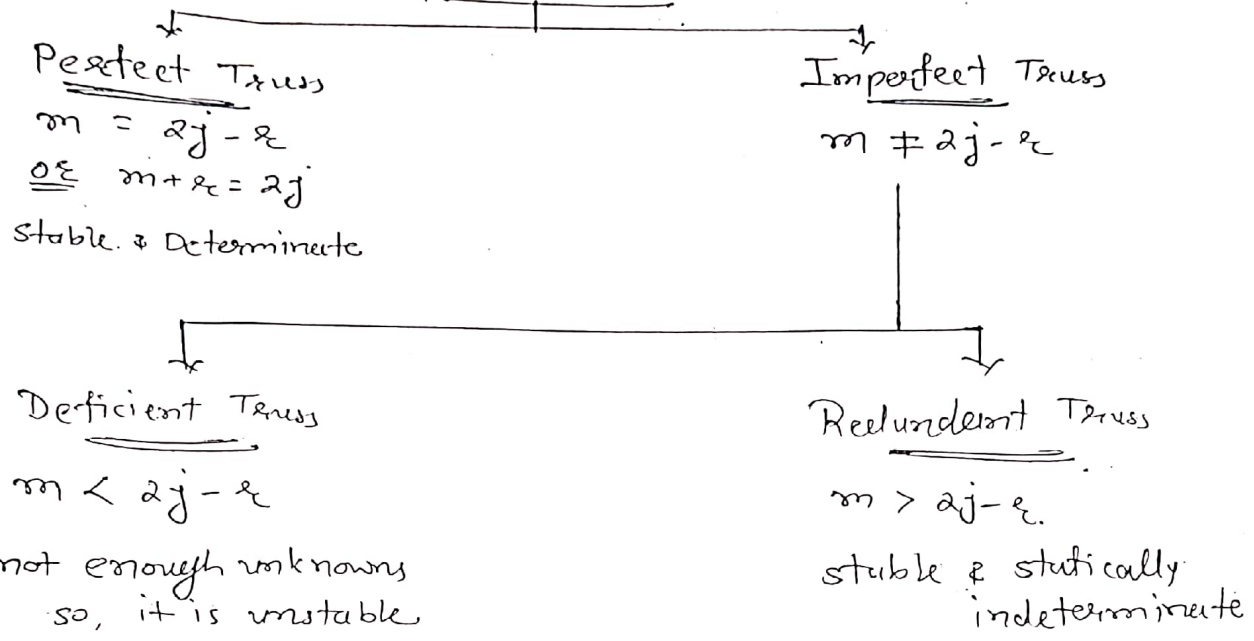 Perfect Truss
m = 2j - r
or m + r = 2j
Stable & Determinate
Imperfect Truss
m ≠ 2j - r
Deficient Truss
m < 2j - r
not enough unknowns
so, it is unstable
Redundant Truss
m > 2j - r.
stable & statically
indeterminate